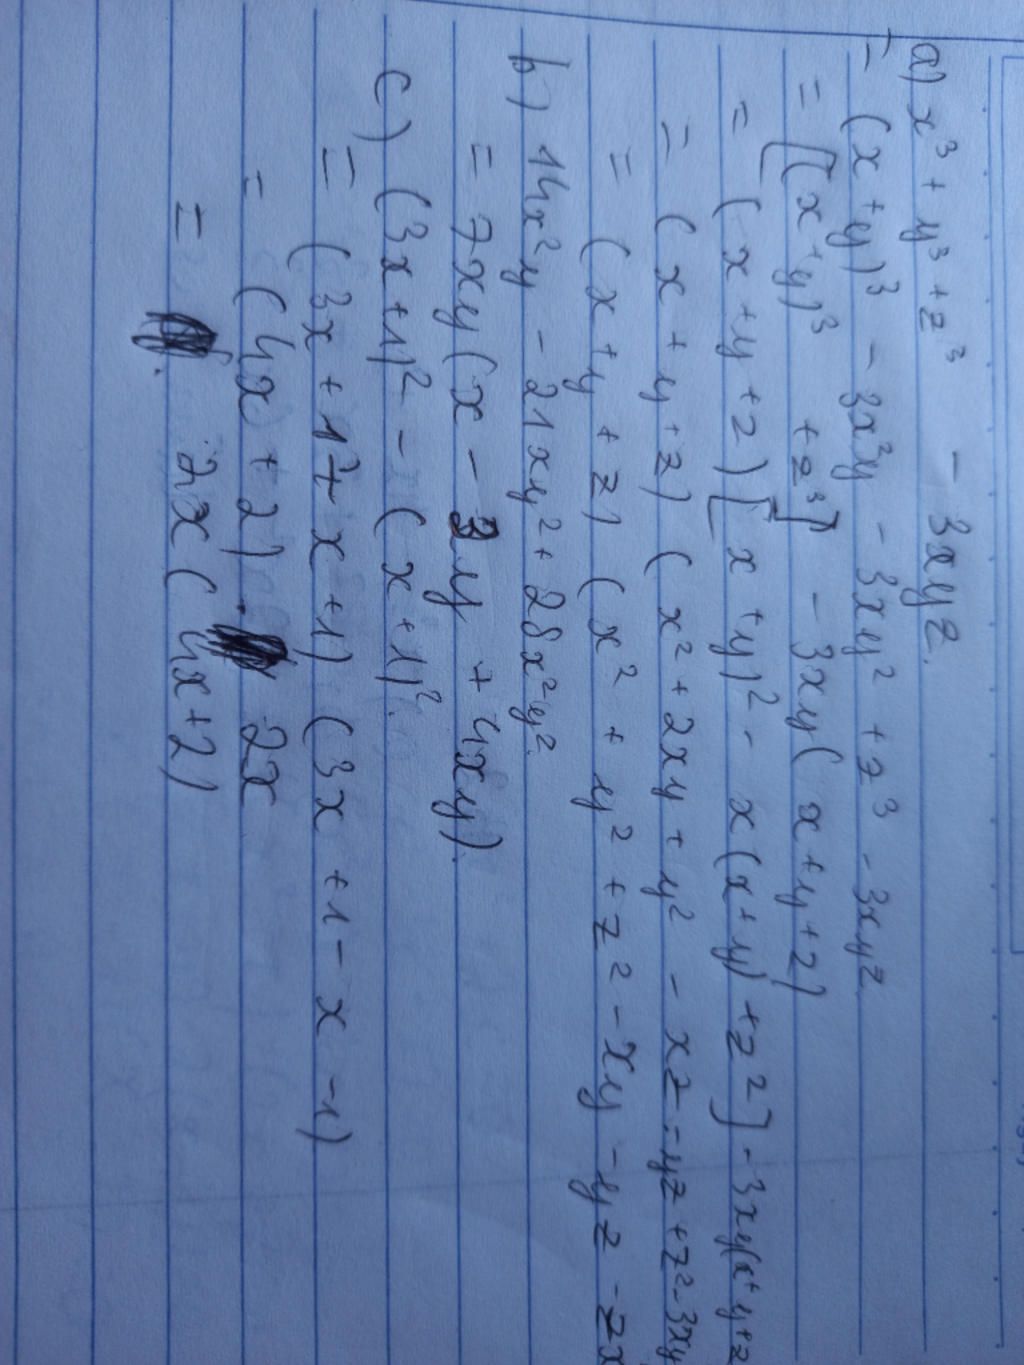 a) x³ + y³ + z³ - 3xyz.
= (x+y)³ - 3x²y - 3xy² + z³ - 3xyz
= [(x+y)³ + z³] - 3xy(x+y+z)
= (x+y+z)[x+y)² - x(x+y) + z²] - 3xy(x+y+z
= (x+y+z) (x²+2xy+y² - xz - yz + z² - 3xy
= (x+y+z) (x² + y² + z² - xy - yz - zx
b) 14x²y - 21xy² + 28x²y².
= 7xy(x - 3y + 4xy).
c) (3x+1)² - (x+1)².
= (3x+1+x+1) (3x+1-x-1)
= (4x+2). 2x
= 2x(4x+2)